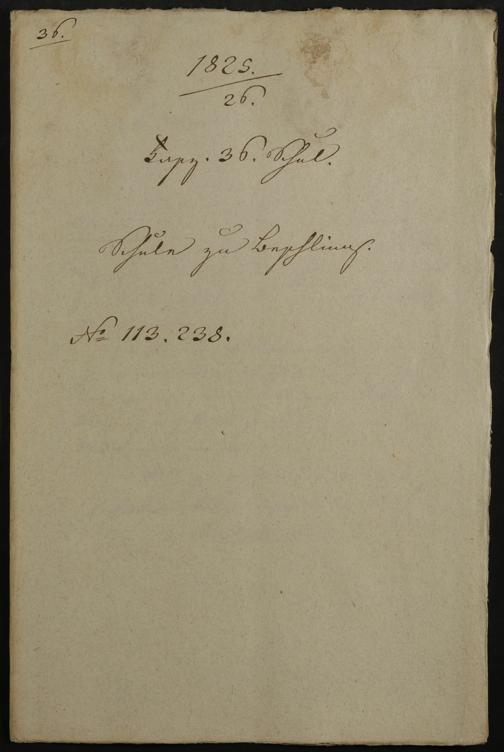 36.
1825.
26.
Fasz. 36. Schul.
Schule zu Beschling.
No 113. 238.